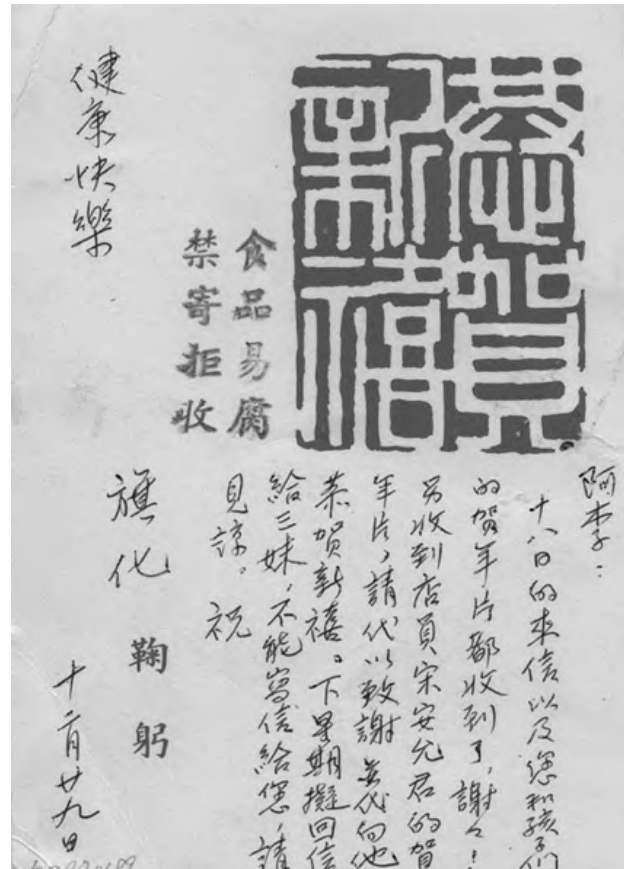 恭賀
新禧
食品易腐
禁寄拒收
阿李：
十八日的來信以及您和孩子們
的賀年片都收到了，謝々！
另收到店員宋安允君的賀
年片，請代以致謝並代向他
恭贺新禧。下星期擬回信
給三妹，不能寫信給您，請
見諒。祝
健康快樂
旗化 鞠躬
十二月廿九日